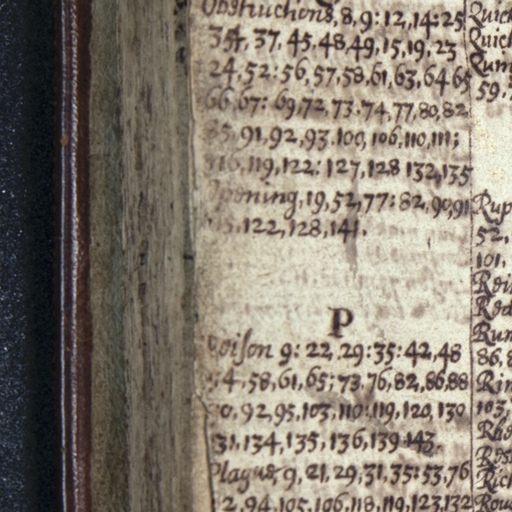 Obstructions, 8, 9: 12, 14: 25
35, 37, 45, 48, 49, 15, 19, 23
24, 52: 56, 57, 58, 61, 63, 64 65
66, 67: 69 72, 73: 74, 77, 80, 82
85, 91, 92, 93, 100, 106, 110, 111;
116, 119, 122: 127, 128 132, 135
Opening, 19, 52, 77: 82, 90, 91
122, 128, 141.
P
Poison 9: 22, 29: 35: 42, 48
54, 58, 61, 65; 73, 76, 82, 86, 88
90, 92, 95, 103, 110: 119, 120, 130
131, 134, 135, 136, 139 143.
Plague, 9, 21, 29, 31, 35: 53, 76
92, 94, 105, 106, 118, 119, 123, 132
Quick
Quick
59.
Rup
52,
101.
Red
Run
86. 8
Rin
103,
Rhe
Rich
Rou